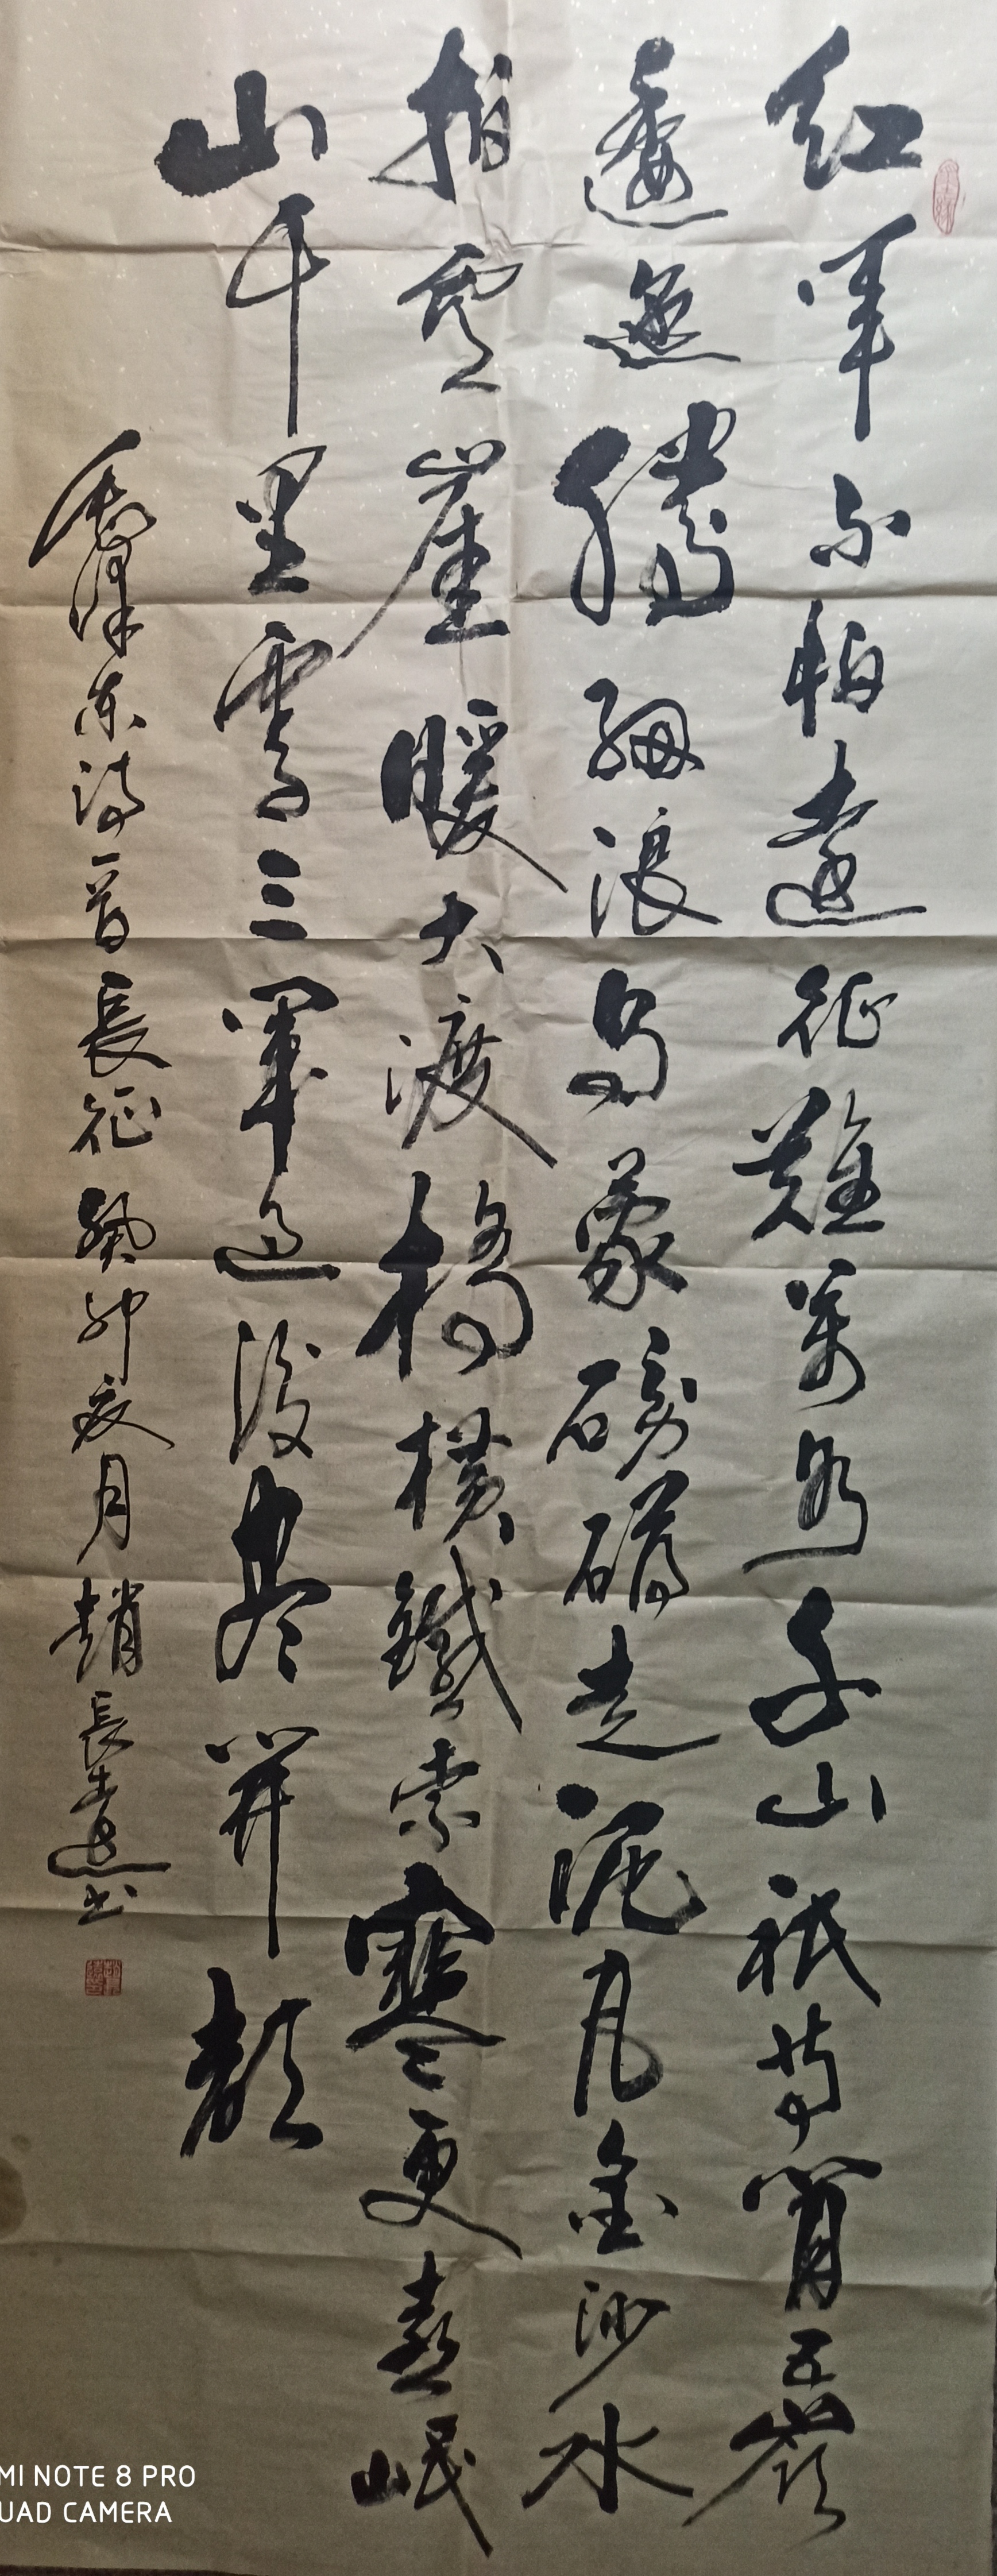 红軍不怕遠征難萬水千山祇等閒五嶺
逶迤騰細浪烏蒙磅礴走泥丸金沙水
拍雲崖暖大渡橋橫鐵索寒更喜岷
山千里雪三軍过後尽開顏
毛澤东诗一首長征 癸卯夏月 趙長 书
MI NOTE 8 PRO
UAD CAMERA